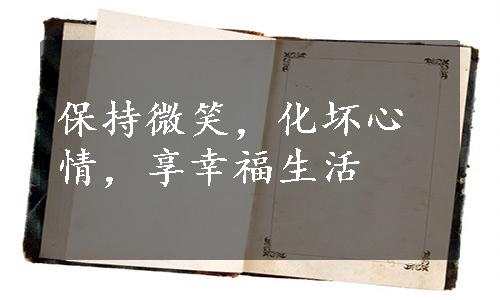 保持微笑，化坏心
情，享幸福生活